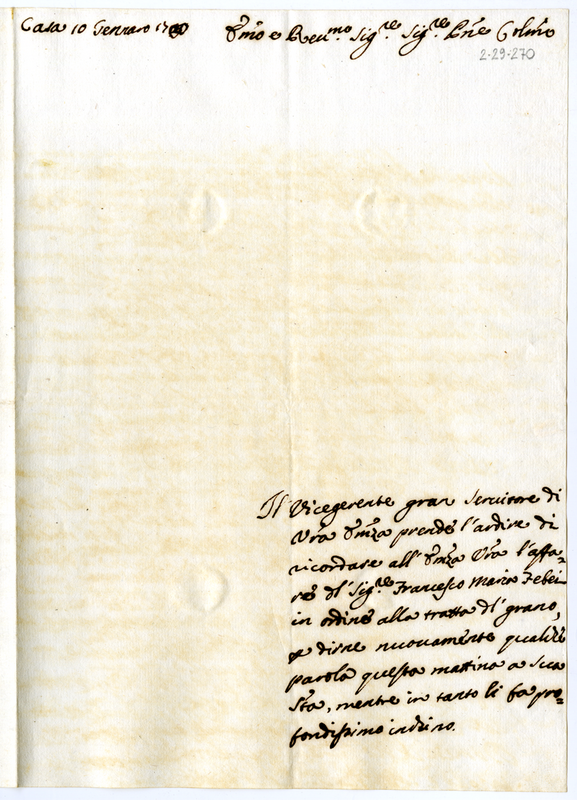 Casa 10 Gennaro 17
Emo e Reu.mo Sig.re Sig.re Pne Colmo
2-29-270
Il Vicegerente gran seruitore di
Vra Emza prende l'ardire di
ricordare all'Emza Vra l'affa=
re dl Sig.re Francesco Maria Febei
in ordine alla tratta dl grano,
e dirne nuouamente qualche
parola questa mattina a Sua
Sta, mentre in tanto li fa pro=
fondissimo inchino.